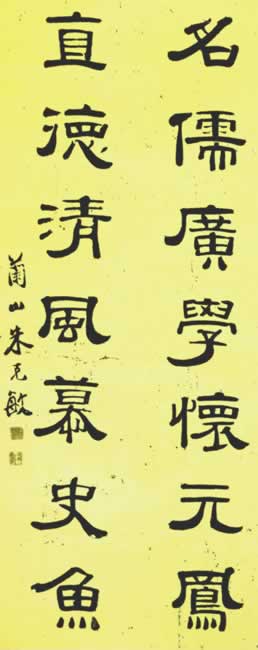 名儒廣學懷元鳳
直德清風慕史魚
蘭山朱克敏